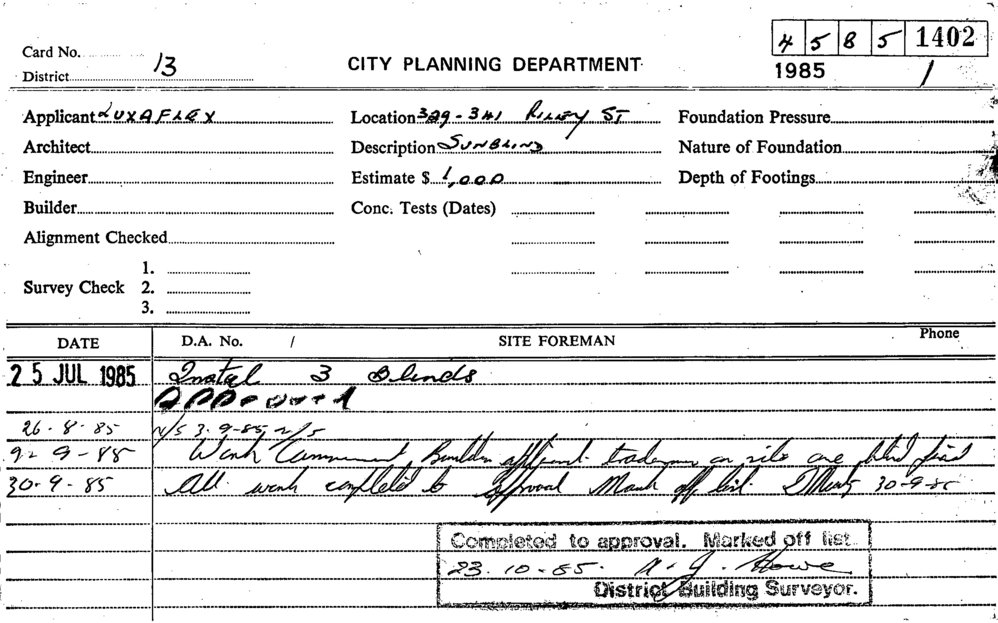 4585 1402
Card No.
13
CITY PLANNING DEPARTMENT
1985 /
District
Applicant LUXAFLEX Location 329-341 RILEY ST Foundation Pressure
Architect Description SUNBLIND Nature of Foundation
Engineer Estimate $ 1,000 Depth of Footings
Builder Conc. Tests (Dates)
Alignment Checked
1.
Survey Check 2.
3.
DATE D.A. No. / SITE FOREMAN Phone
25 JUL 1985 Instal 3 Blinds
Approved
26-8-85 N/S 3-9-85 N/S
9-85 Work Builder on site one blind
30-9-85 All work completed to approval Mark off list 30-9-85
Completed to approval. Marked off list.
23.10-85. Howe
District Building Surveyor.